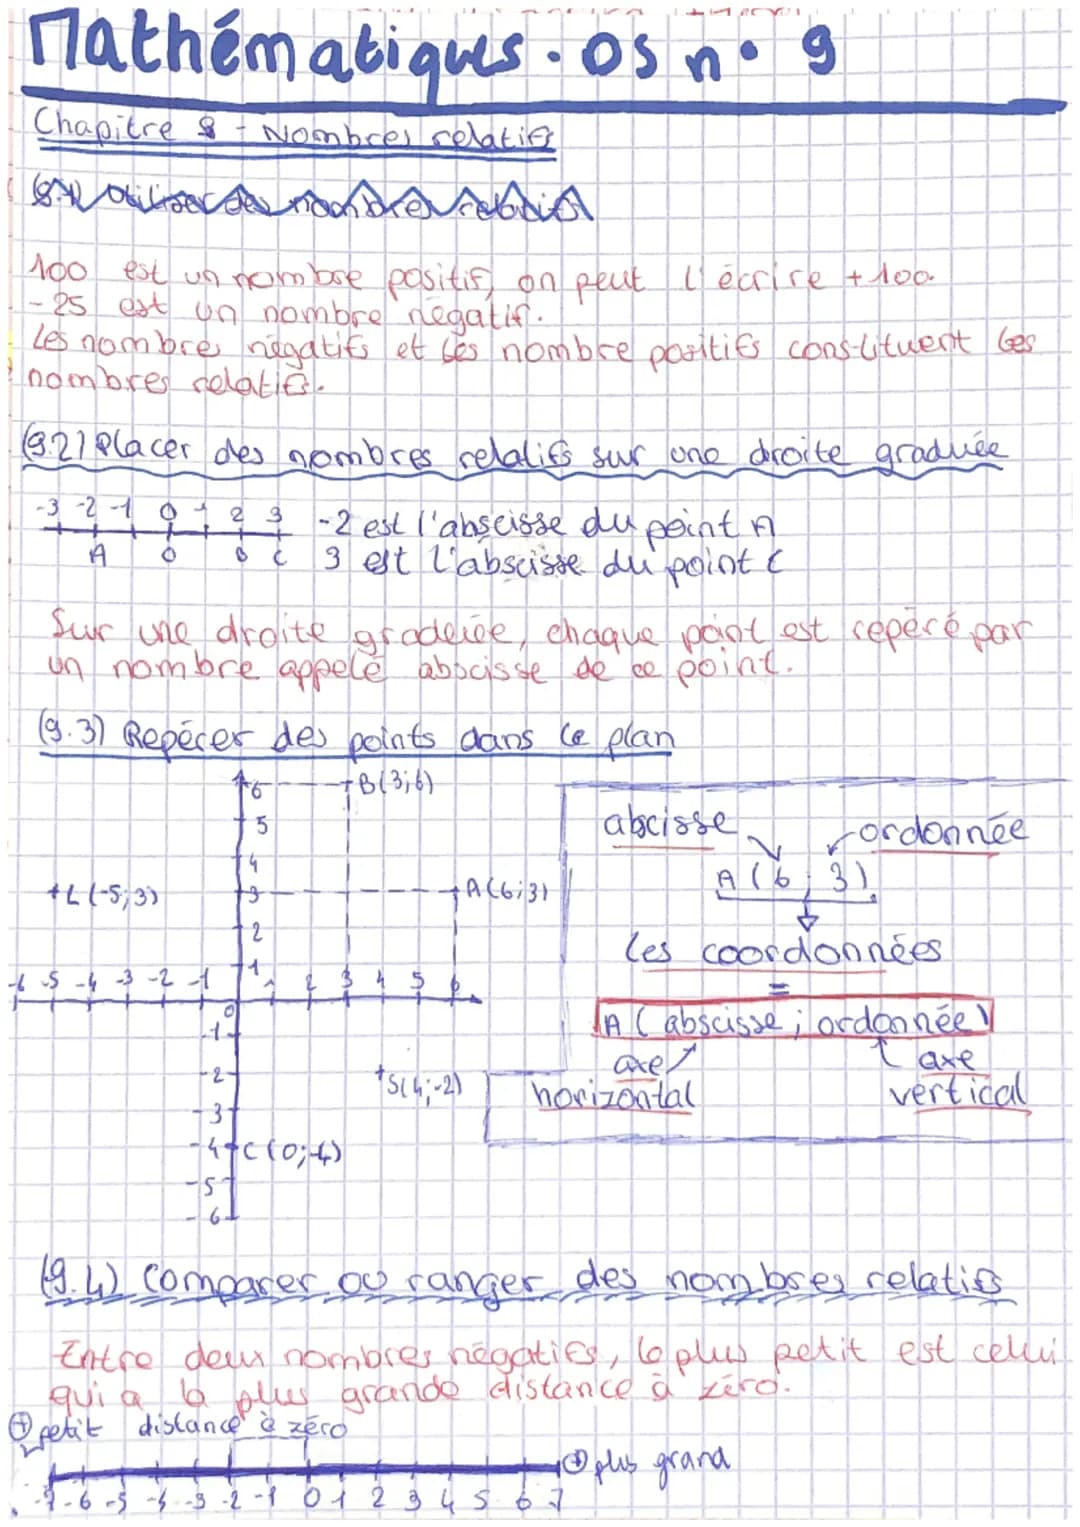 Mathématiques. OS n° 9
Chapitre 8 - Nombres relatifs
100 est un nombre positif, on peut l'écrire +100.
-25 est un nombre négatif.
Les nombres négatifs et les nombre positifs constituent les
nombres relatifs.
(9.2) Placer des nombres relatifs sur une droite graduée
-3 -2 -1 0 1 2 3
A O B C
-2 est l'abscisse du point A
3 est l'abscisse du point C
Sur une droite graduée, chaque point est repéré par
un nombre appelé abscisse de ce point.
(9.3) Repérer des points dans le plan
6 B(3;6)
5
4
L(-5;3) 3 A(6;3)
2
1
-6 -5 -4 -3 -2 -1 1 2 3 4 5 6
0
-1
-2 S(4;-2)
-3
-4 C(0;-4)
-5
-6
abscisse ordonnée
A (6 ; 3)
les coordonnées
=
A (abscisse ; ordonnée)
axe horizontal
axe vertical
(9.4) Comparer ou ranger des nombres relatifs
Entre deux nombres négatifs, le plus petit est celui
qui a la plus grande distance à zéro.
+ petit distance à zéro
+ plus grand
-7 -6 -5 -4 -3 -2 -1 0 1 2 3 4 5 6 7